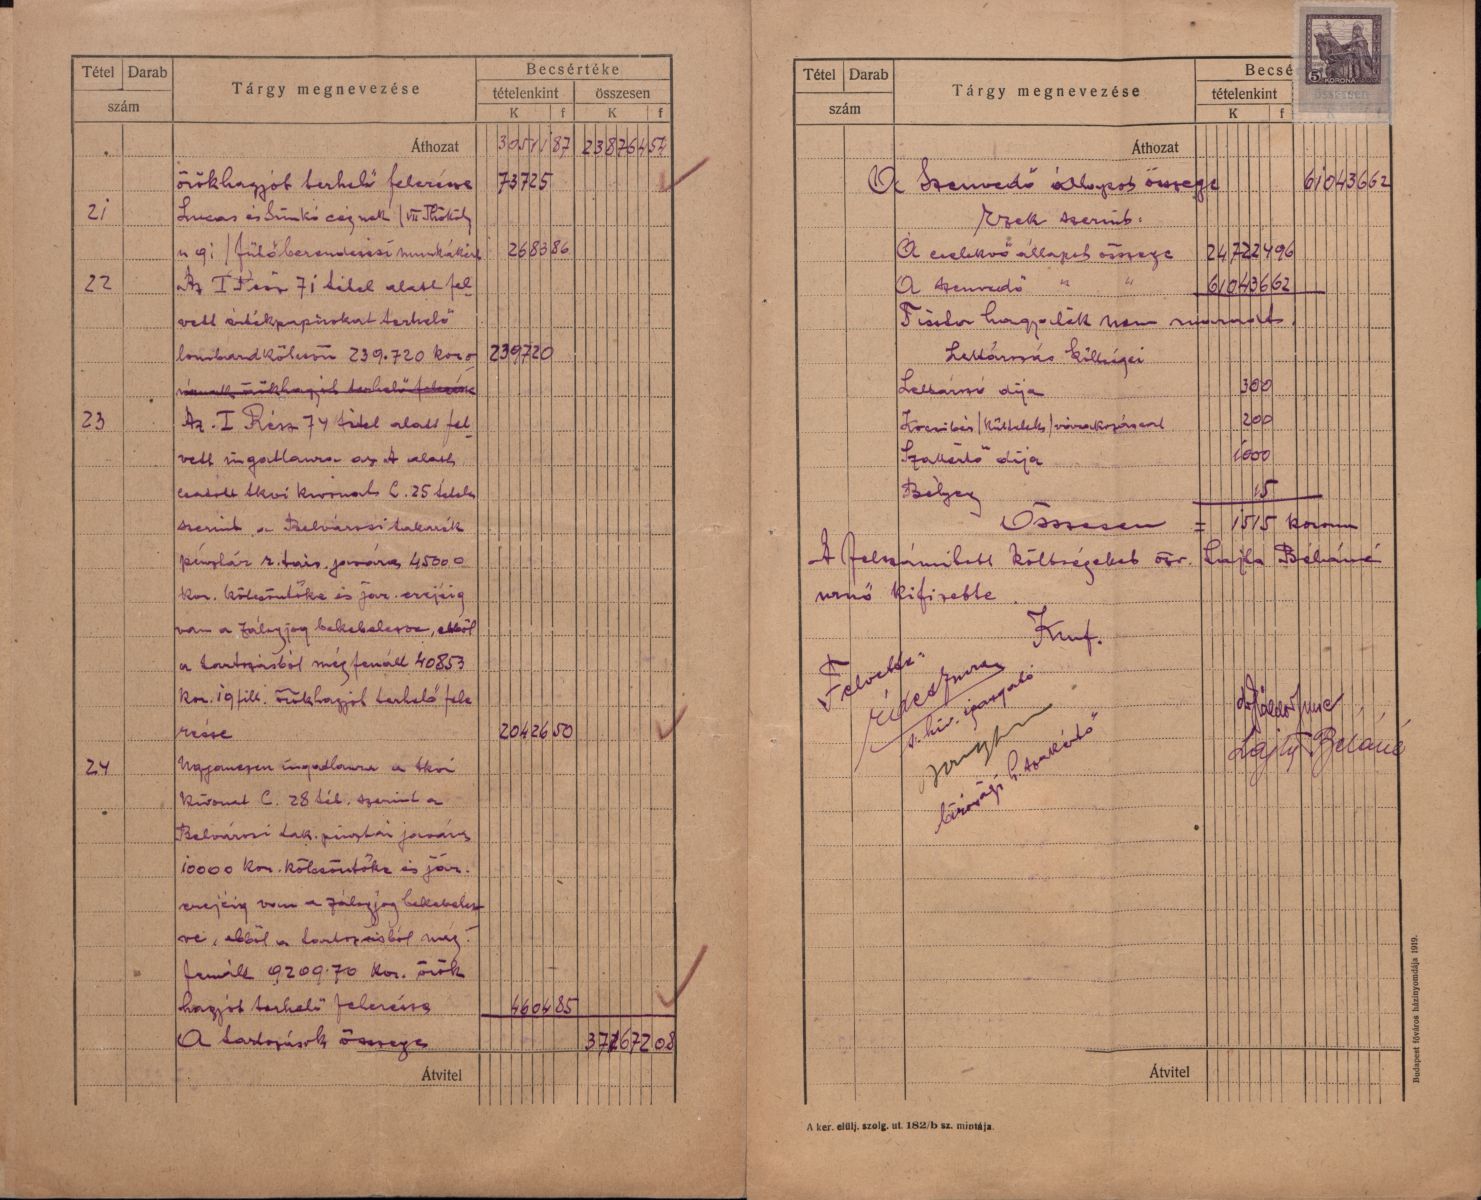 Tétel
Darab
szám
Tárgy megnevezése
Becsértéke
tételenkint
összesen
K f K f
Áthozat 30511 87 238764 54
örökhagyót terhelő felerésze 73725
21 Lucas és Sinkó cégnek / VII Thököly
u 91 / fűtőberendezési munkákért 2683 86
22 Az I Rész 71 tétel alatt fel-
vett értékpapirokat terhelő
lombardkölcsön 239.720 koro- 239720
23 Az. I Rész 74 tétel alatt fel-
vett ingatlanra az A alatt
csatolt tkvi kivonat C. 25 tétel
szerint a Belvárosi takarék
pénztár r. társ. javára 45000
kor. kölcsöntőke és jár. erejéig
van a zálogjog bekebelezve, ebből
a tartozásból még fenáll 40853
kor. 19 fill. örökhagyót terhelő fele
része 20426 50
24 Ugyanezen ingatlanra a tkvi
kivonat C. 28 tét. szerint a
Belvárosi tak. pénztár javára
10000 kor. kölcsöntőke és jár.
erejéig van a zálogjog bekebelez
ve, ebből a tartozásból még
fenáll 9209.70 kor. örök
hagyót terhelő felerésze 4604 85
A tartozások összege 371672 08
Átvitel
Tétel
Darab
szám
Tárgy megnevezése
Becsé
tételenkint
összesen
K f K
5 KORONA
Áthozat
A Szenvedő állapot összege 610436 62
Ezek szerint:
A cselekvő állapot összege 247224 96
A szenvedő " " 610436 62
Tiszta hagyaték nem maradt.
Leltározás költségei
Leltározó díja 300
Kocsibér / kültelek / várakozással 200
Szakértő díja 1000
Bélyeg 15
Összesen = 1515 korona
A felszámitott költségeket özv. Lajta Béláné
urnő kifizette.
Kmf.
Felvette:
s. hiv. igazgató
bírósági h. szakértő
Lajta Béláné
Átvitel
A ker. elülj. szolg. ut. 182/b sz. mintája.
Budapest főváros házinyomdája 1919.